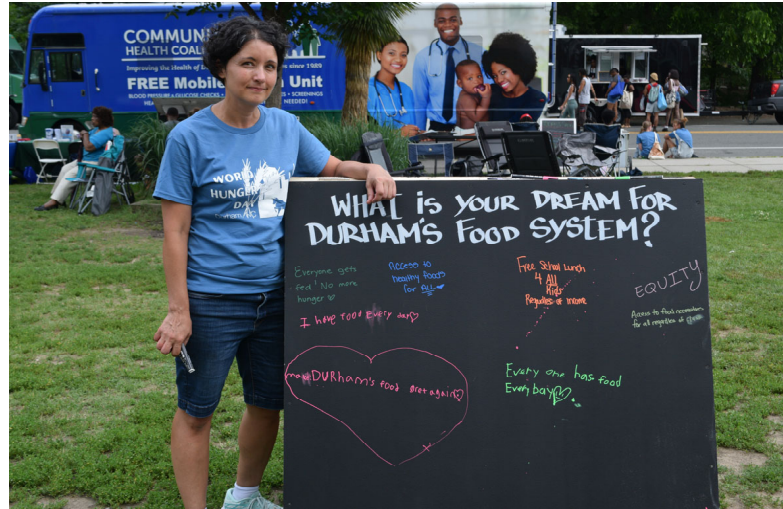 COMMUN
HEALTH COALI
Improving the Health of
since 1989
FREE Mobile
Unit
BLOOD PRESSURE • GLUCOSE CHECKS
• SCREENINGS
NEEDED!
WORLD
HUNGER
DAY
WHAT IS YOUR DREAM FOR
DURHAM'S FOOD SYSTEM?
Everyone gets
fed! No more
hunger
Access to
healthy foods
for ALL
Free School Lunch
4 All
Kids
Regardless of income
EQUITY
Access to food
for all regardless of
I have food Every day
make DURham's food great again
Every one has food
Every bay